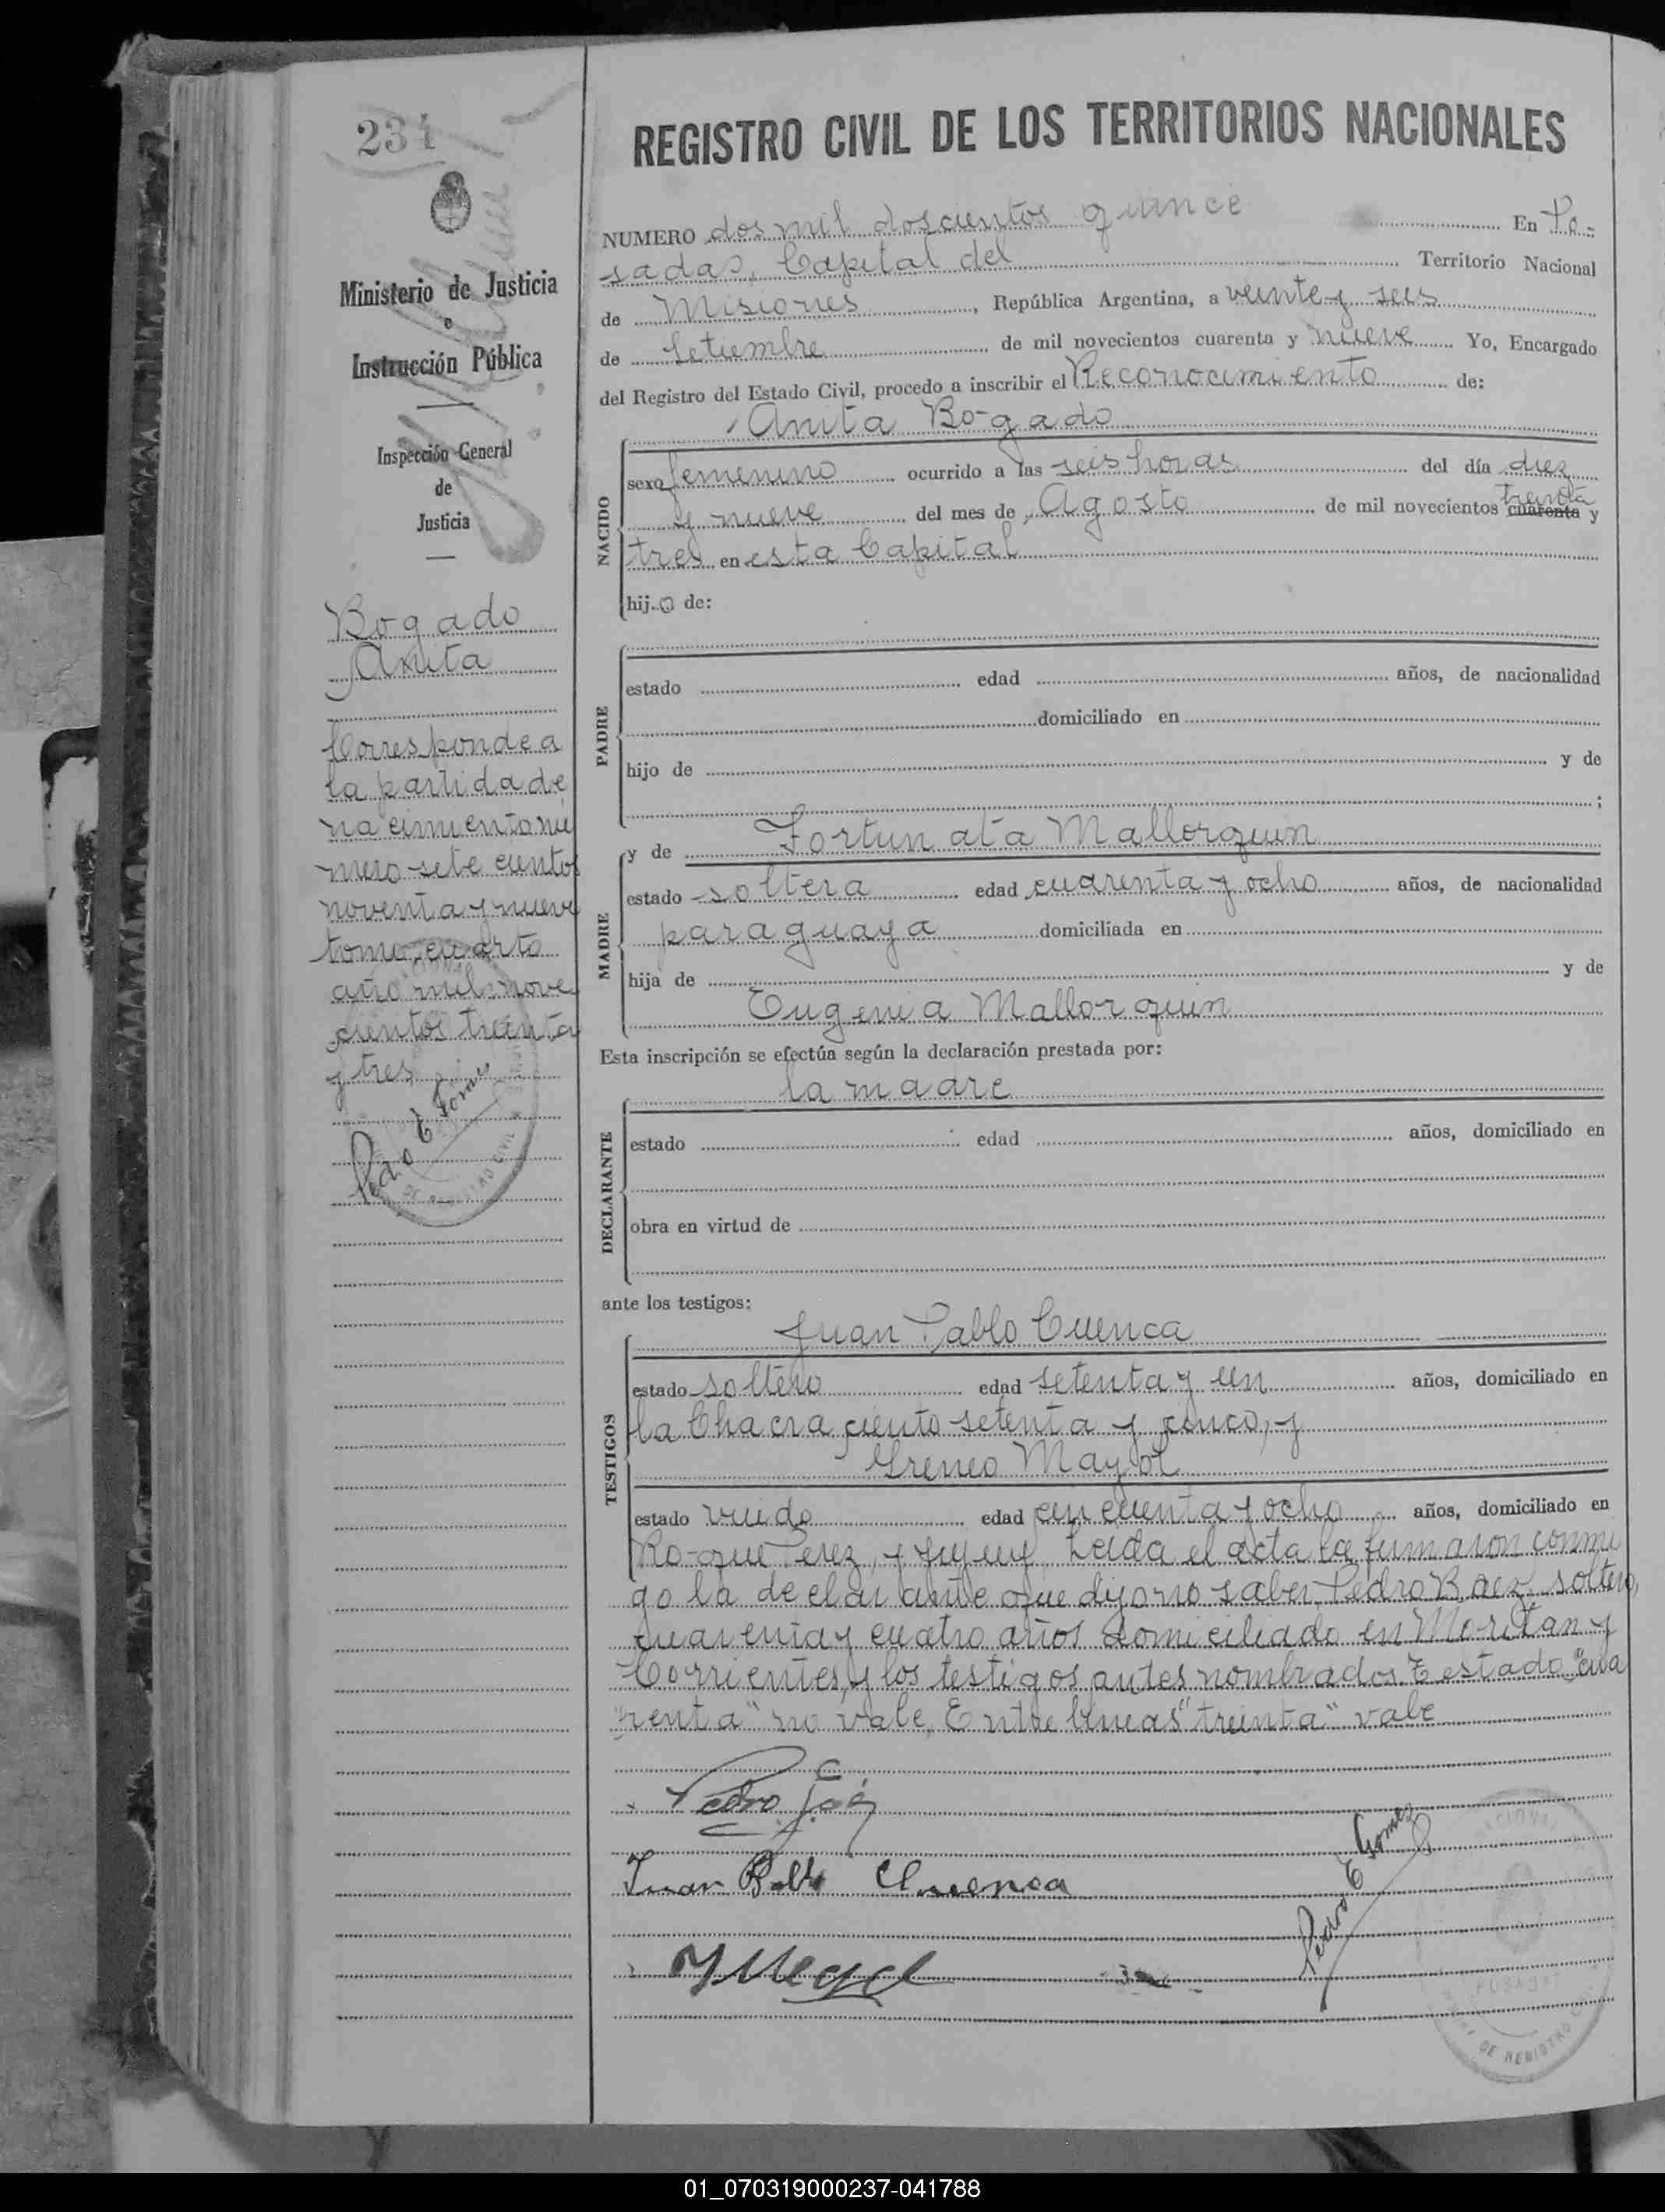 234
REGISTRO CIVIL DE LOS TERRITORIOS NACIONALES
Ministerio de Justicia
e
Instrucción Pública
Inspección General
de
Justicia
Bogado
Anita
Corresponde a
la partida de
nacimiento nú
mero sete cientos
noventa y nueve
tomo cuarto
año mil nove
cientos treinta
y tres
Pedro E Gomez
NUMERO dos mil doscientos quince En Po-
sadas, Capital del Territorio Nacional
de Misiones, República Argentina, a veinte y seis
de Setiembre de mil novecientos cuarenta y nueve Yo, Encargado
del Registro del Estado Civil, procedo a inscribir el Reconocimiento de:
Anita Bogado
NACIDO
sexo femenino ocurrido a las seis horas del día diez
treinta
y nueve del mes de Agosto de mil novecientos cuarenta y
tres en esta Capital
hija de:
PADRE
estado edad años, de nacionalidad
domiciliado en
hijo de y de
;
MADRE
y de Fortunata Mallorquin
estado soltera edad cuarenta y ocho años, de nacionalidad
paraguaya domiciliada en
hija de y de
Eugenia Mallorquin
Esta inscripción se efectúa según la declaración prestada por:
la madre
DECLARANTE
estado edad años, domiciliado en
obra en virtud de
ante los testigos:
Juan Pablo Cuenca
TESTIGOS
estado soltero edad setenta y un años, domiciliado en
la Chacra ciento setenta y cinco, y
Greneo Mayol
estado viudo edad cincuenta y ocho años, domiciliado en
Roque Perez, y Jujuy Leida el acta la firmaron conmi
go la declarante que dijo no saber, Pedro Baez, soltero,
cuarenta y cuatro años domiciliado en Moritan y
Corrientes, y los testigos antes nombrados. Testado "cua
renta" no vale, Entre lineas "treinta" vale
Pedro
Juan Pablo Cuenca
Pedro E Gomez
POSADAS
DE REGISTRO
01_070319000237-041788